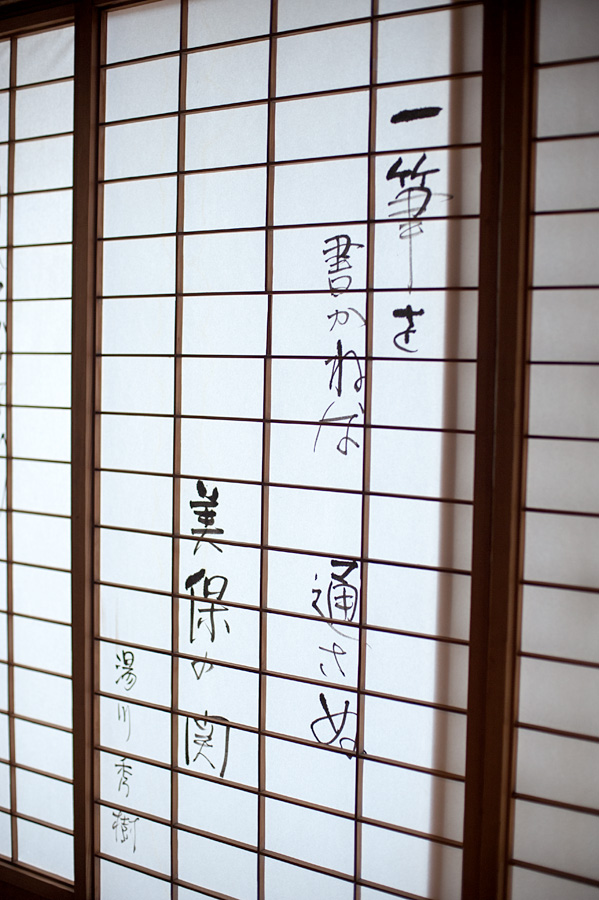 一筆を
書かねば 通さぬ
美保の関
湯川秀樹